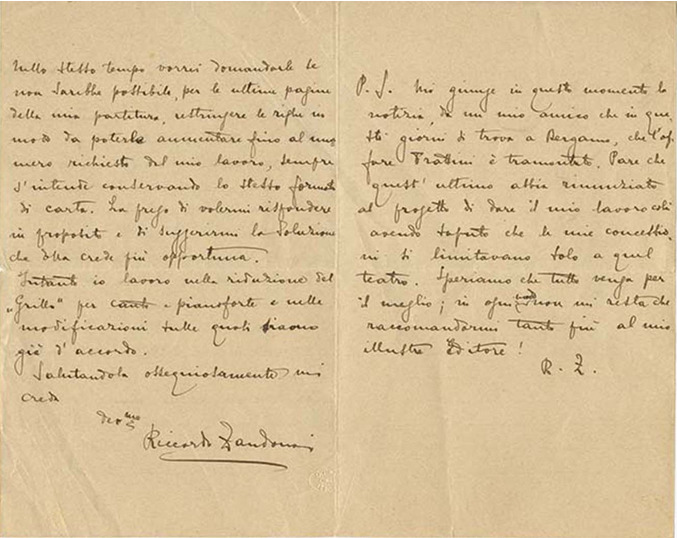 Nello stesso tempo vorrei domandarle se
non sarebbe possibile, per le ultime pagine
della mia partitura, restringere le righe in
modo da poterle aumentare fino al nu
mero richiesto dal mio lavoro, sempre
s'intende conservando lo stesso formato
di carta. La prego di volermi rispondere
in proposit e di suggerirmi la soluzione
che Ella crede più opportuna.
Intanto io lavoro nella riduzione del
„Grillo" per canto e pianoforte e nelle
modificazioni sulle quali siamo
già d'accordo.
Salutandola ossequiosamente mi
creda
dev.mo
Riccardo Zandonai
P. S. Mi giunge in questo momento la
notizia, da un mio amico che in que,
sti giorni si trova a Bergamo, che l'af,
fare è tramontato. Pare che
quest' ultimo abbia rinunziato
al progetto di dare il mio lavoro colà
avendo saputo che le mie concessio,
ni si limitavano solo a quel
teatro. Speriamo che tutto venga per
il meglio; in ogni modo non mi resta che
raccomandarmi tanto più al mio
illustre Editore!
R. Z.